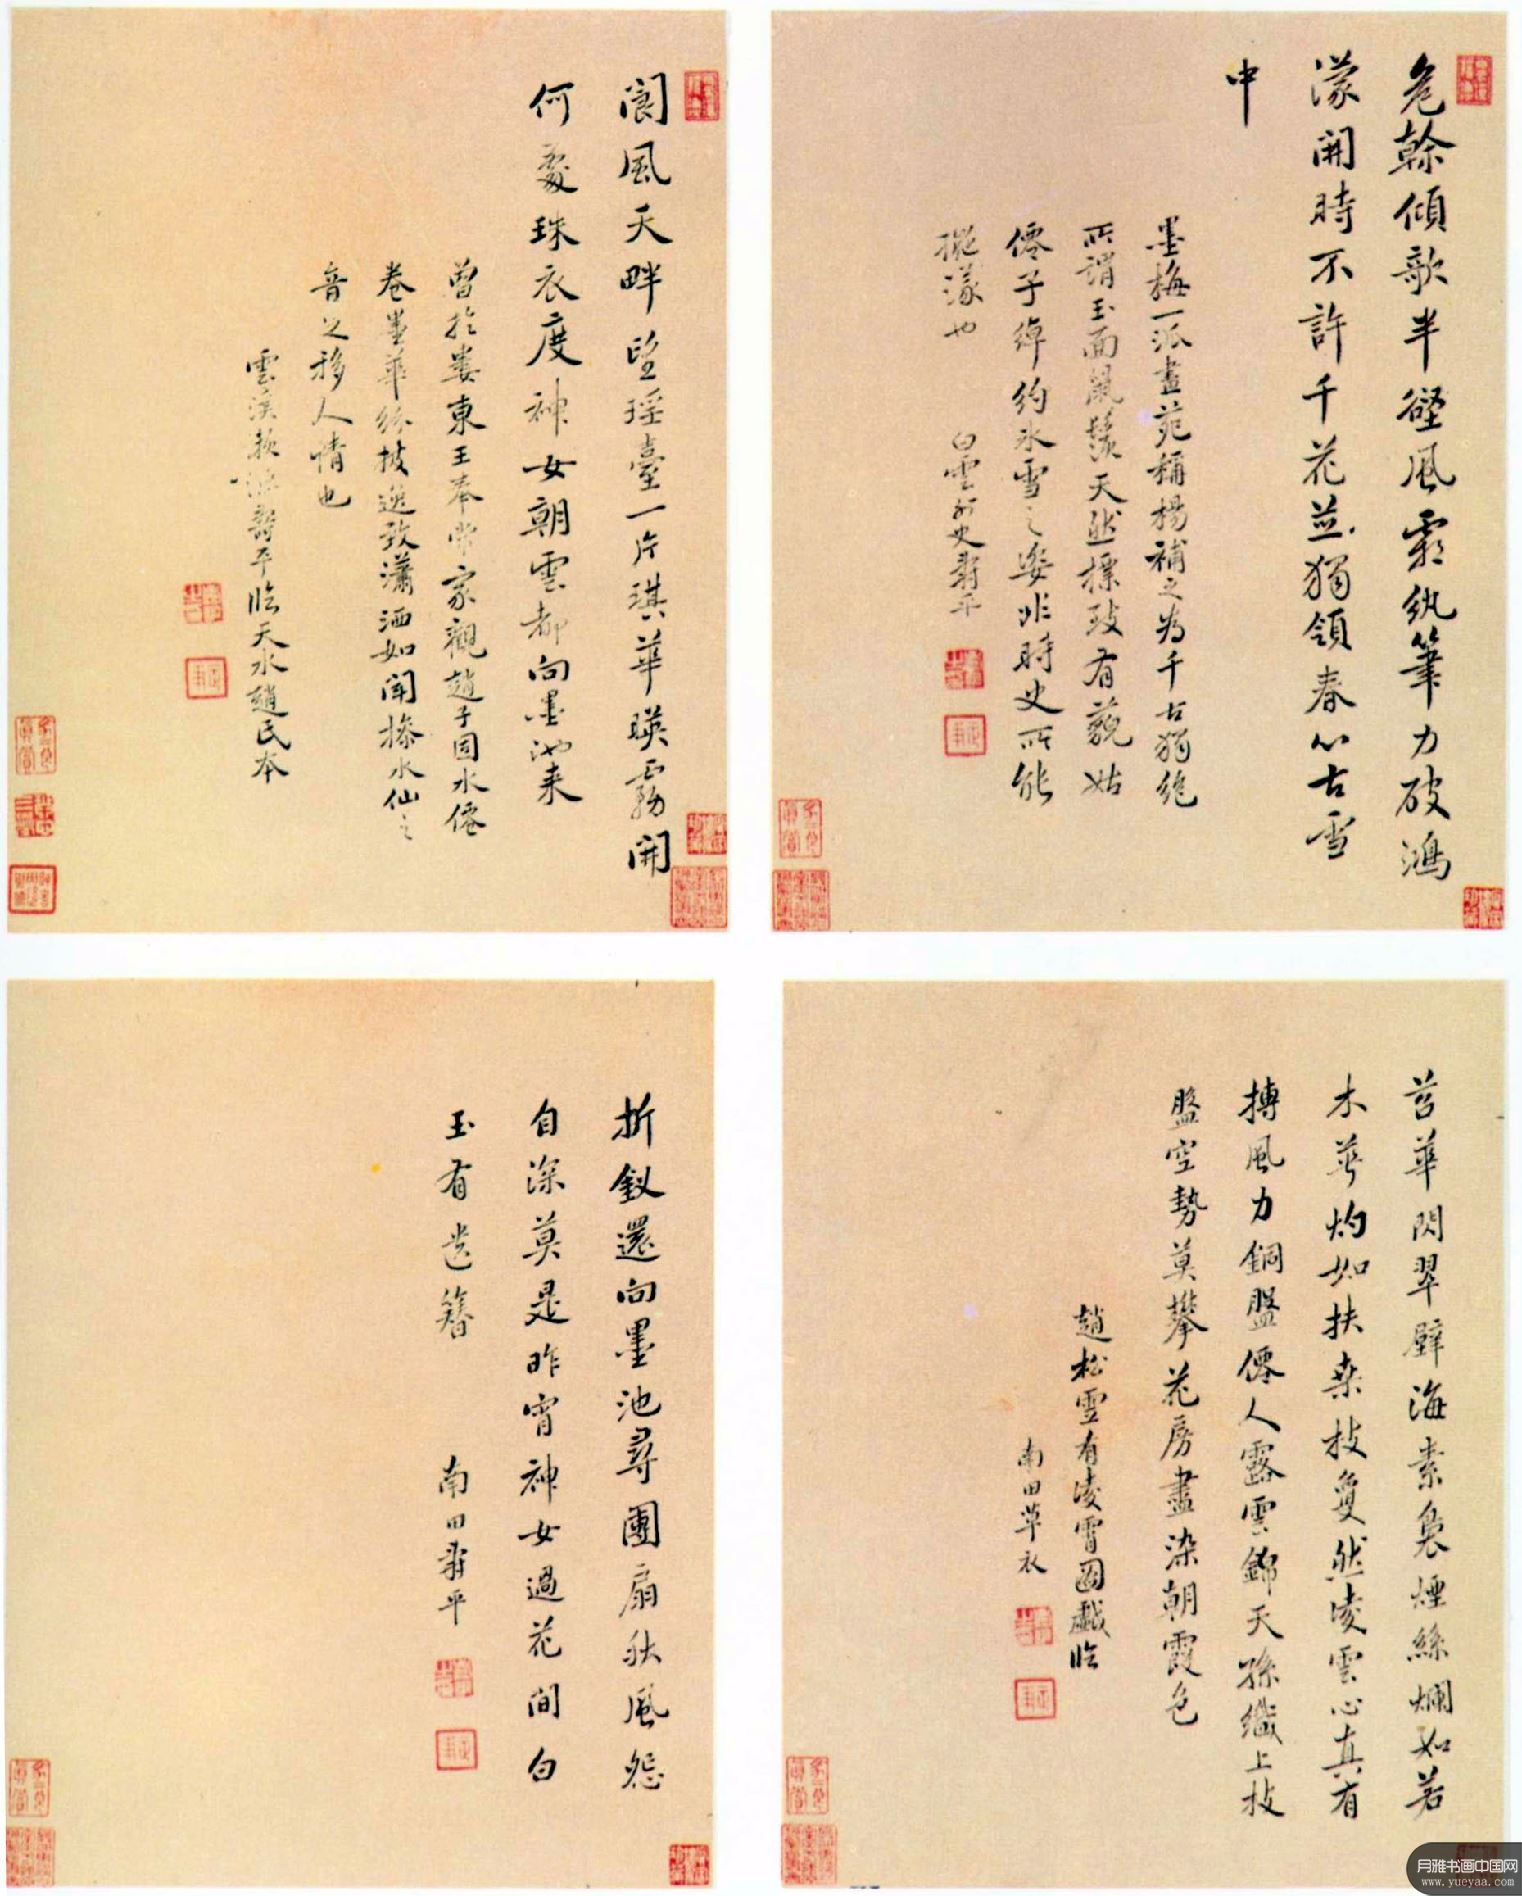 危榦傾欹半壁風霜紈筆力破鴻
濛開時不許千花並獨領春心古雪
中
墨梅一派畫苑稱楊補之為千古獨絕
所謂玉面鼠鬚天然標致有藐姑
僊子綽約冰雪之姿非時史所能
擬議也
白雲外史壽平
閬風天畔望瑤臺一片淇華暎霧開
何處珠衣度神女朝雲都向墨池来
曾於婁東王奉常家觀趙子固水僊
卷墨華紛披逸致瀟洒如聞操水仙之
音之移人情也
雲溪漁壽平臨天水趙氏本
苕華閃翠臨海素裊煙絲爛如若
木華灼如扶桒枝夐然凌雲心真有
摶風力銅盤僊人露雲錦天孫織上枝
盤空勢莫攀花房盡染朝霞色
趙松雪有凌霄圖戲臨
南田草衣
折釵還向墨池尋團扇秋風怨
自深莫是昨宵神女過花間白
玉有遺簪
南田壽平
月雅书画中国网
www.yueyaa.com